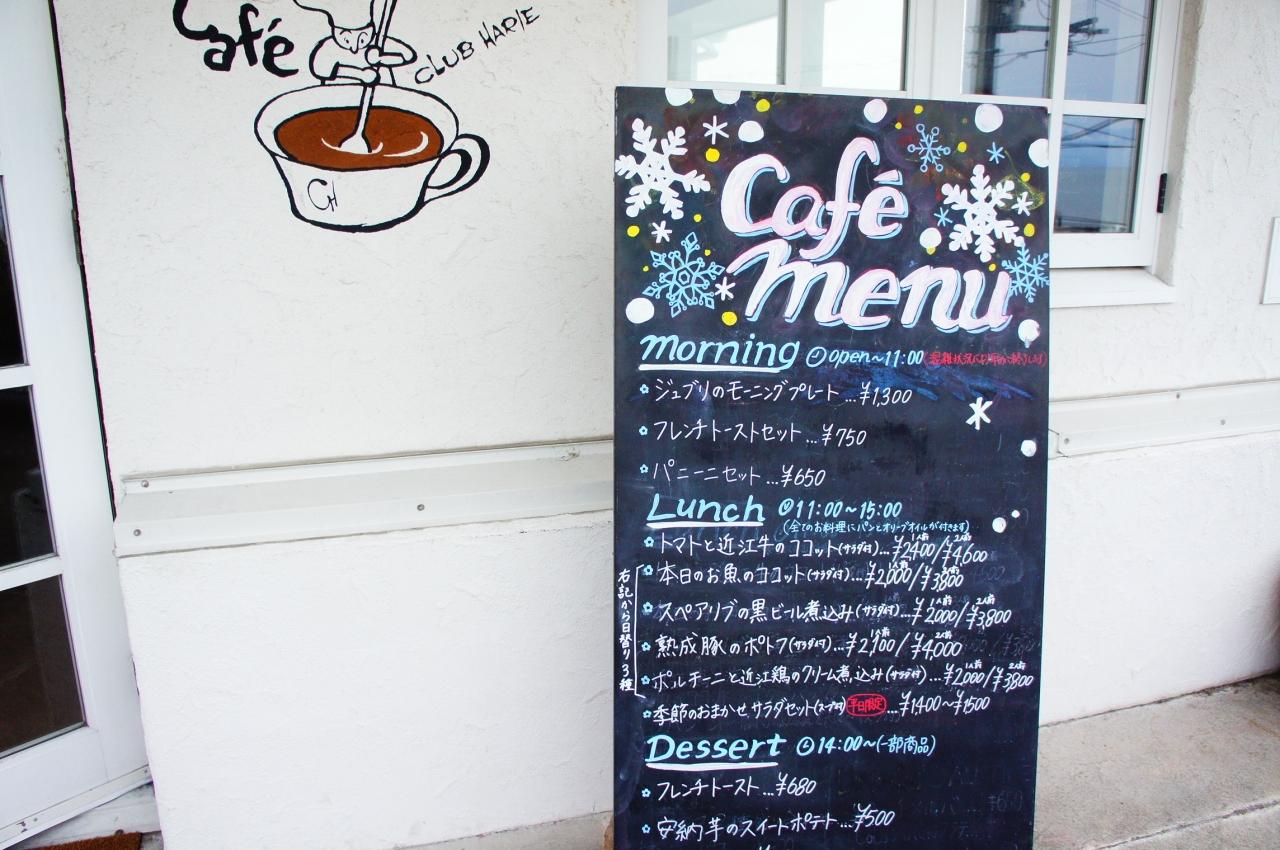 Café
CLUB HARIE
CH
Café
menu
morning open~11:00
ジュブリのモーニングプレート...¥1,300
フレンチトーストセット...¥750
パニーニセット...¥650
Lunch 11:00~15:00
(全てのお料理にパンとオリーブオイルが付きます)
トマトと近江牛のココット(サラダ付)...1人前¥2400/2人前¥4,600
右記から日替り3種
本日のお魚のココット(サラダ付)...1人前¥2,000/2人前¥3,800
スペアリブの黒ビール煮込み(サラダ付)...1人前¥2000/2人前¥3,800
熟成豚のポトフ(サラダ付)...1人前¥2,100/2人前¥4,000
ポルチーニと近江鶏のクリーム煮込み(サラダ付)...1人前¥2,000/2人前¥3800
季節のおまかせサラダセット(スープ付)平日限定...¥1400~¥1500
Dessert 14:00~(一部商品)
フレンチトースト...¥680
安納芋のスイートポテト...¥500